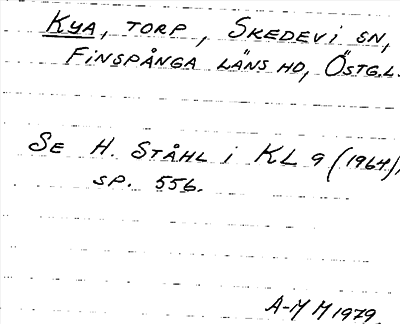 Kya, torp, Skedevi sn,
Finspånga läns hd, Östg.l.
Se H. Ståhl i KL 9 (1964),
sp. 556.
A-M M 1979